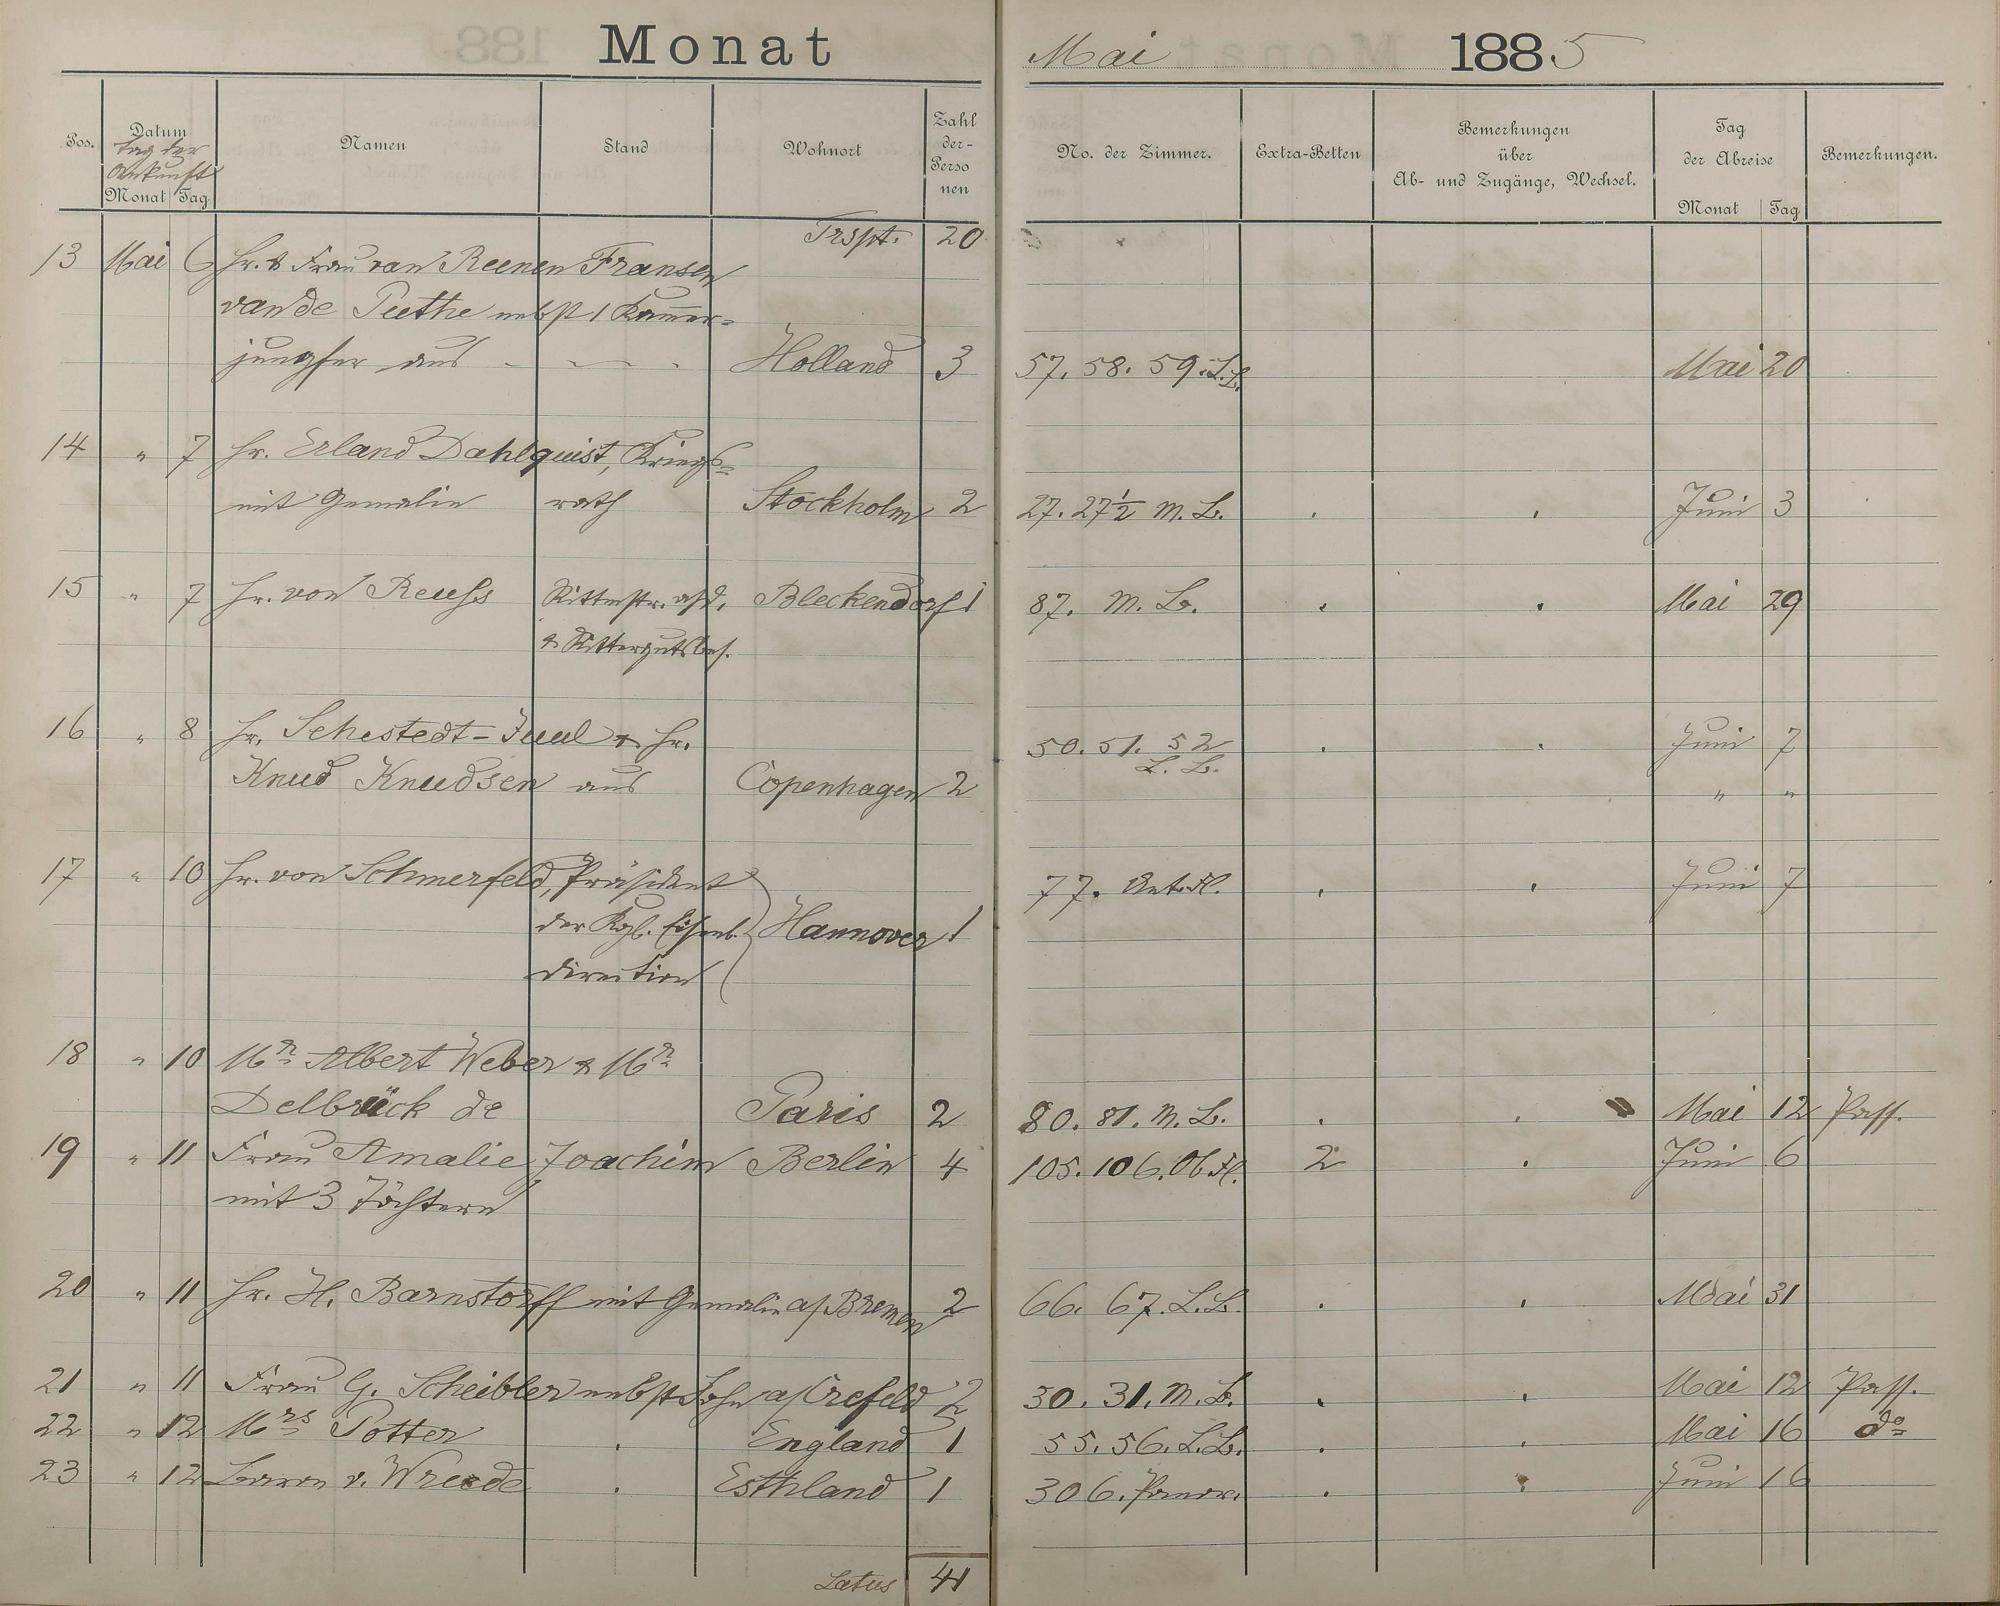 Monat Mai 1885
Pos. Datum Tag der Ankunft Monat Tag Namen Stand Wohnort Zahl der Perso nen No. der Zimmer. Extra-Betten Bemerkungen über Ab- und Zugänge, Wechsel. Tag der Abreise Monat Tag Bemerkungen.
Trspt. 20
13 Mai 6 Hr. & Frau van Reenen Fransen
van de Puthe nebst 1 Kammer=
jungfer aus - - - Holland 3 57. 58. 59. L.L. Mai 20
14 " 7 Hr. Erland Dahlquist, Kriegs=
mit Gemalin rath Stockholm 2 27. 27 1/2 M. L. . . Juni 3
15 " 7 Hr. von Reuss Rittmstr. a/d. Bleckendorf 1 87. M. L. . . Mai 29
& Rittergutsbes.
16 " 8 Hr. Sehestedt-Juul & Hr. 50. 51. 52 . . Juni 7
L. L.
Knud Knudsen aus Copenhagen 2 " "
17 " 10 Hr. von Schmerfeld, Präsident 77. Unt. Fl. . . Juni 7
der Kgl. Eisenb. Hannover 1
direction
18 " 10 Mr Albert Weber & Mr
Delbrück de Paris 2 80. 81. M. L. . . Mai 12 Pass.
19 " 11 Frau Amalie Joachim Berlin 4 105. 106. Ob. Fl. 2 . Juni 6
mit 3 Töchtern
20 " 11 Hr. H. Barnstorff mit Gemalin a/ Bremen 2 66. 67. L.L. . . Mai 31
21 " 11 Frau G. Scheibler nebst Sohn a/ Crefeld 2 30. 31. M. L. . . Mai 12 Pass.
22 " 12 Mrs Potter . England 1 55. 56. L.L. . . Mai 16 do
23 " 12 Baron v. Wrede . Esthland 1 306. Panor. . . Juni 16
Latus 41